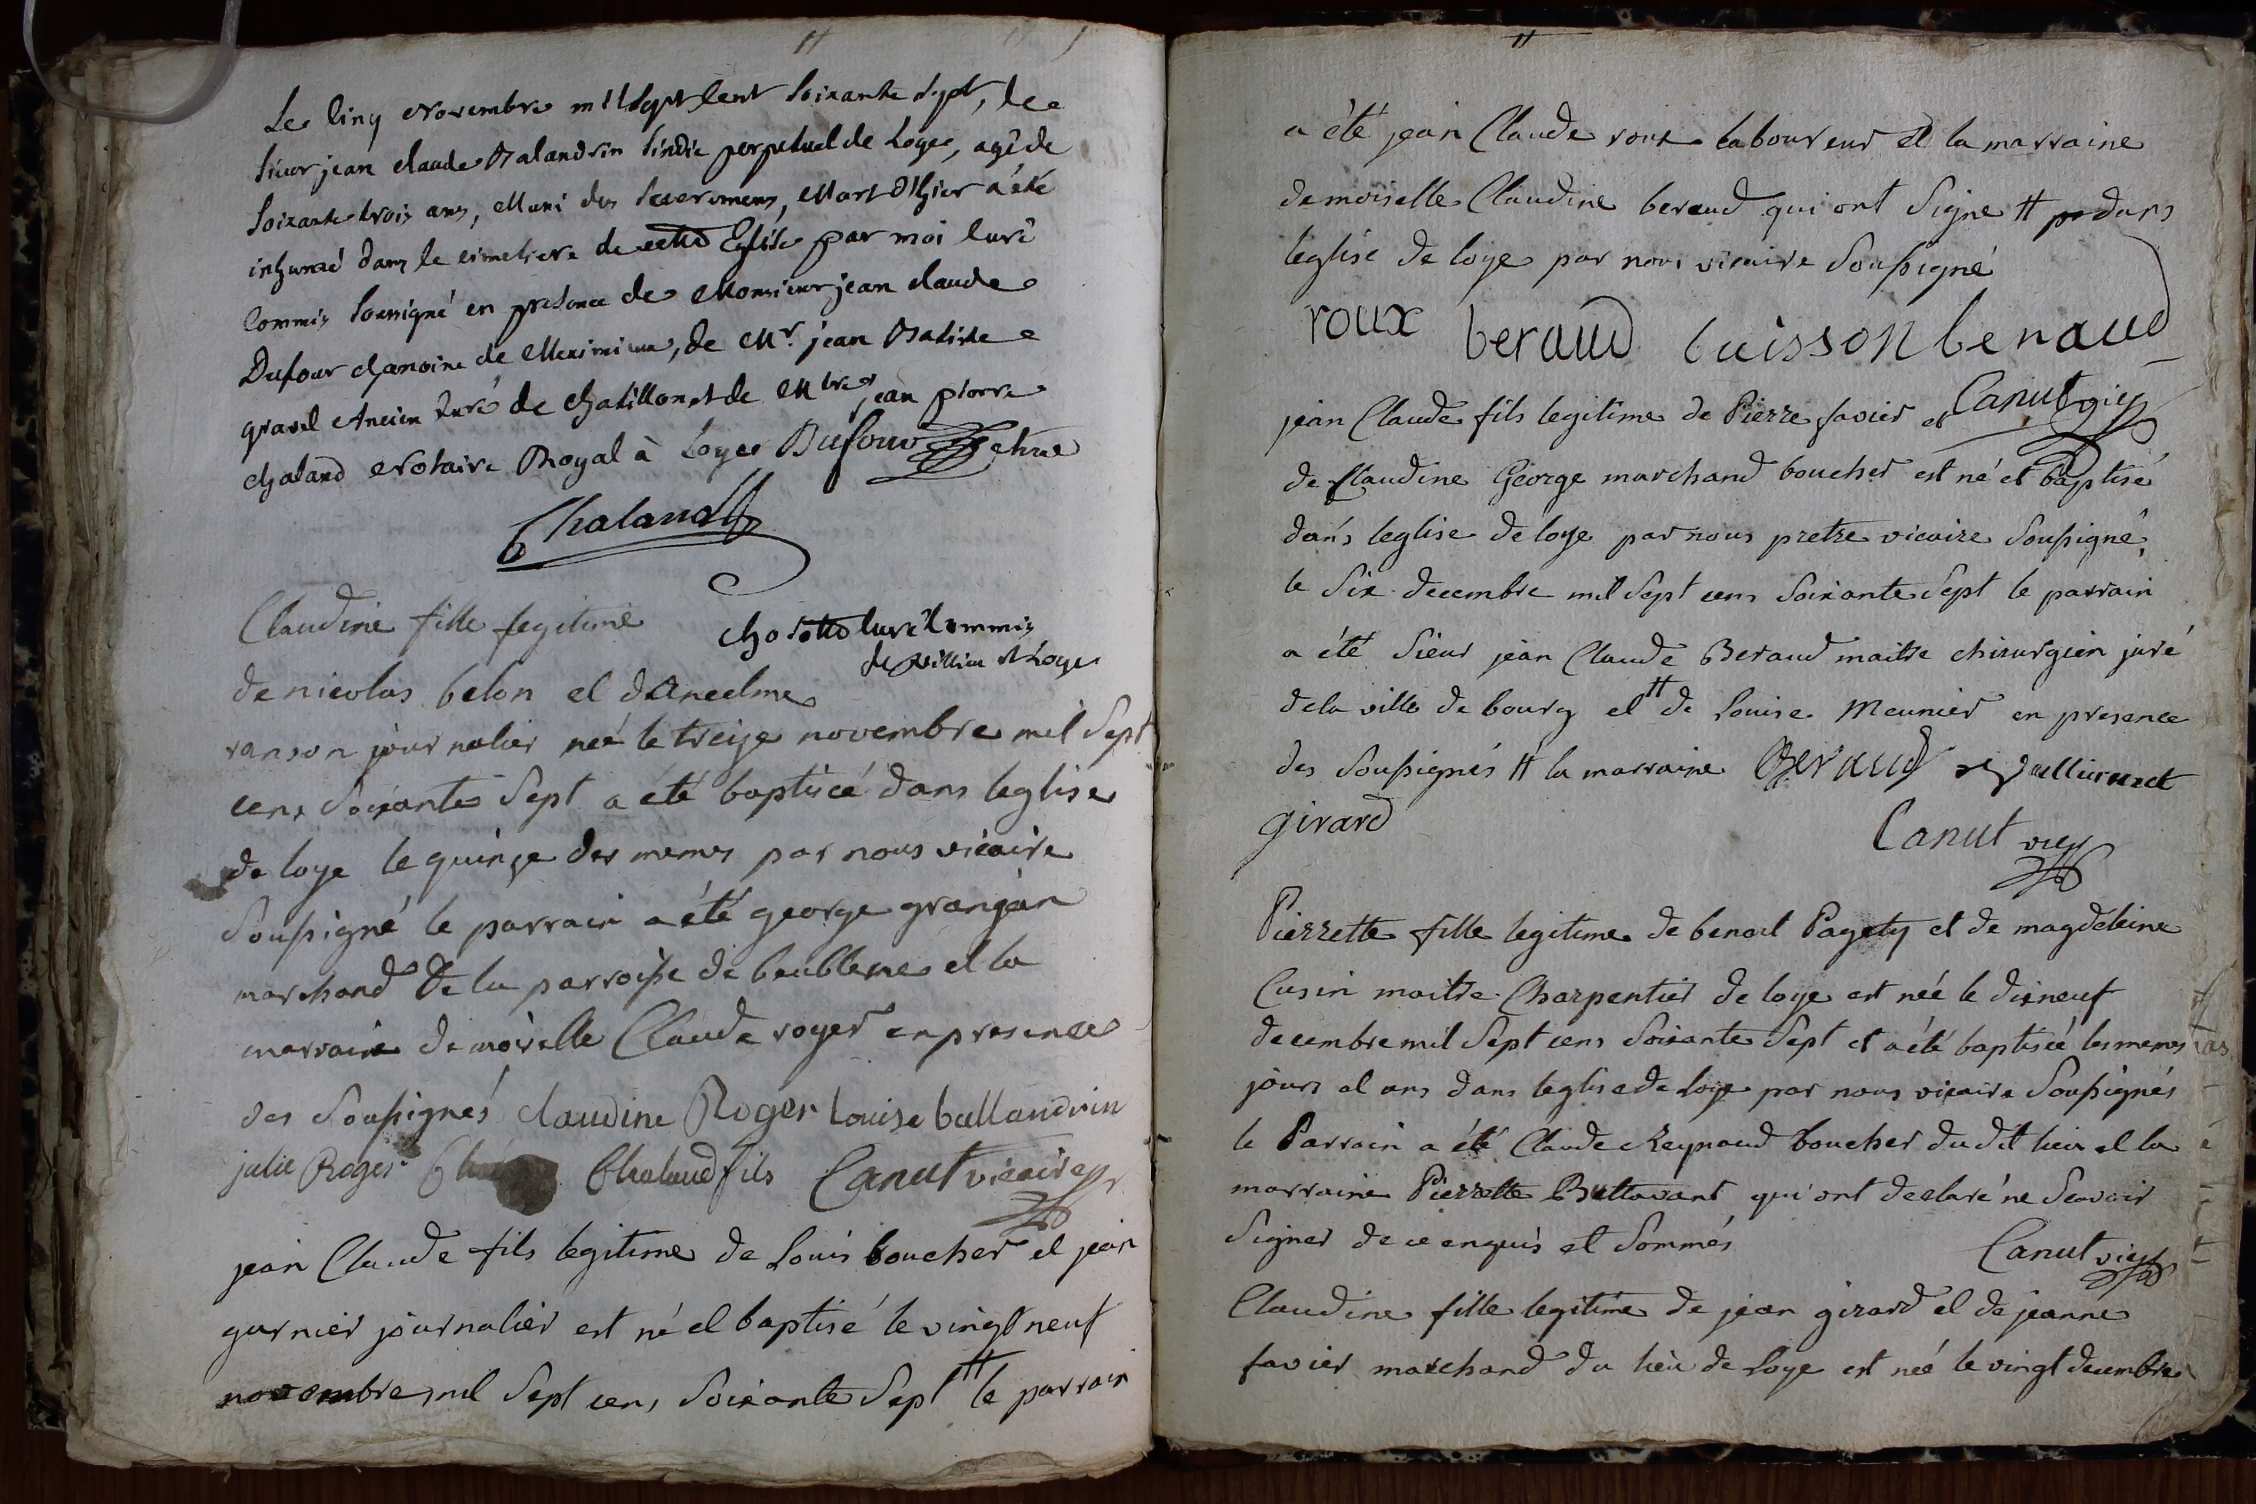 Le Cinq Novembre mil Sept Cent Soixante Sept, le
Sieur jean claude Balandrin Sindic perpetuel de Loyes, agé de
Soixante trois ans, Muni des Sacremens, Mort D'hier a été
inhumé dans le cimetiere de cette Eglise par moi Curé
Commis Soussigné en presence de Monsieur jean claude
Dufour chanoine de Meximieux, de Mr. jean Batiste
gravel Ancien Curé de chatillon et de Mtre jean pierre
chaland Notaire Royal à Loyes Dufour
Chaland
Claudine fille legitime
Curé Commis
de Villieu et Loyes
de nicolas belon et d'Ancelme
ranson journalier neé le treize novembre mil Sept
cens Soixante Sept a été baptiseé dans leglise
de loye le quinze des memes par nous vicaire
Soussigné le parrain a été george granjan
marchand De la parroisse de et la
marraine demoiselle Claude roger en presence
des Soussignés claudine Roger Louise ballandrin
julie Roger Chaland fils Canut vicaire
jean Claude fils legitime de Louis boucher et jean
garnier journalier est né et baptisé le vingt neuf
novembre mil Sept cens Soixante Sept # le parrain
a été jean Claude roux laboureur et la marraine
demoiselle Claudine beraud qui ont Signe # dans
leglise de loye par nous vicaire Soussigné
roux beraud buisson benaud
Canut vic
jean Claude fils legitime de Pierre favier et
de Claudine George marchand boucher est né et baptisé
dans leglise de loye par nous pretre vicaire Soussigné,
le Six decembre mil Sept cens Soixante Sept le parrain
a été Sieur jean Claude Beraud maitre chirurgien juré
dela ville de bourg et # de Louise Meunier en presence
des Soussignés # la marraine Beraud
girard
Canut vic
Pierrette fille legitime de benoit Pagety et de magdeleine
Cusin maitre Charpentier de loye est née le dixneuf
decembre mil Sept cens Soixante Sept et a été baptiseé les memes
jours et ans dans leglise de loye par nous vicaire Soussignés
le Parrain a été Claude Reynaud boucher du dit lieu et la
marraine Pierrette qui ont declaré ne Scavoir
Signer de ce enquis et Sommés
Canut vic
Claudine fille legitime de jean girard et de jeanne
favier marchand du lieu de Loye est née le vingt decembre